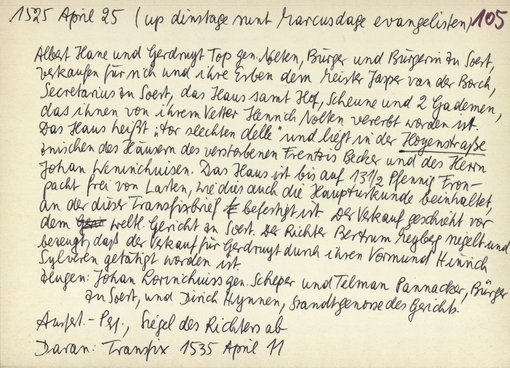 1525 April 25 (up dinstage sunt Marcusdage evangelisten) 105
Albert Hane und Gerdruyt Top gen. Nolten, Bürger und Bürgerin zu Soest,
verkaufen für sich und ihre Erben dem Meister Jasper van der Borch,
Secretarius zu Soest, das Haus samt Hof, Scheune und 2 Gademen,
das ihnen von ihrem Vetter Henrich Nolten vererbt worden ist.
Das Haus heißt "tor slechten delle" und liegt in der Hogenstraße
zwischen den Häusern des verstorbenen Becker und des Herrn
Johan. Das Haus ist bis auf 13 1/2 Pfennig Fron-
pacht frei von Lasten, wie dies auch die Haupturkunde beinhaltet,
an der dieser Transfixbrief befestigt ist. Der Verkauf geschieht vor
dem weltl. Gericht zu Soest. Der Richter Bertrum siegelt und
bezeugt, daß der Verkauf für Gerdruyt durch ihren Vormund Hinrich
Sylveren getätigt worden ist.
Zeugen: Johan gen. Scheper und Telman Pannacker, Bürger
zu Soest, und Dirich Huynnen, Standtgenosse des Gerichts.
Ausf. - Pg., Siegel des Richters ab
Daran: Transfix 1535 April 11